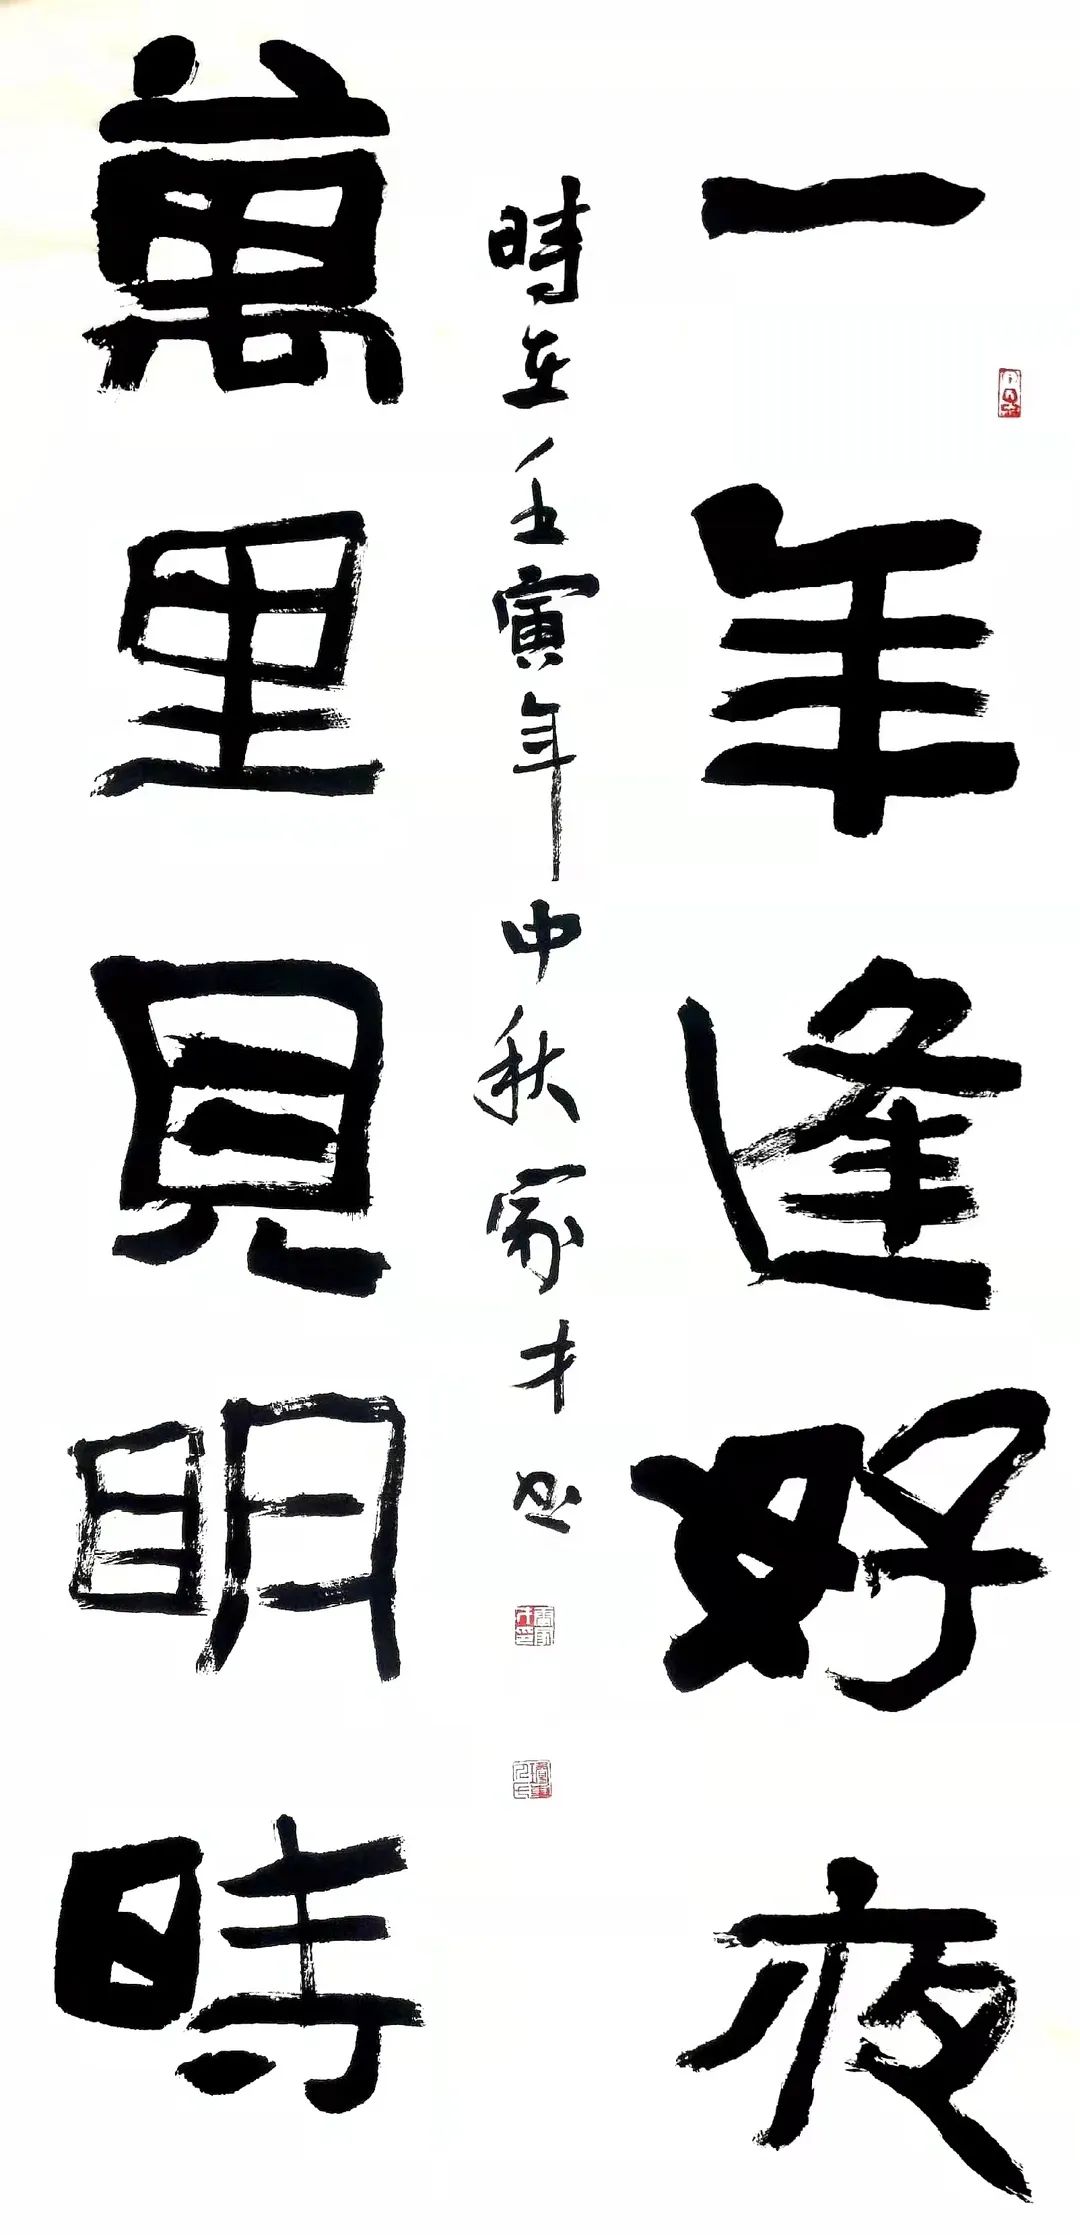 一年逢好夜
萬里見明時
時在壬寅年中秋家才書